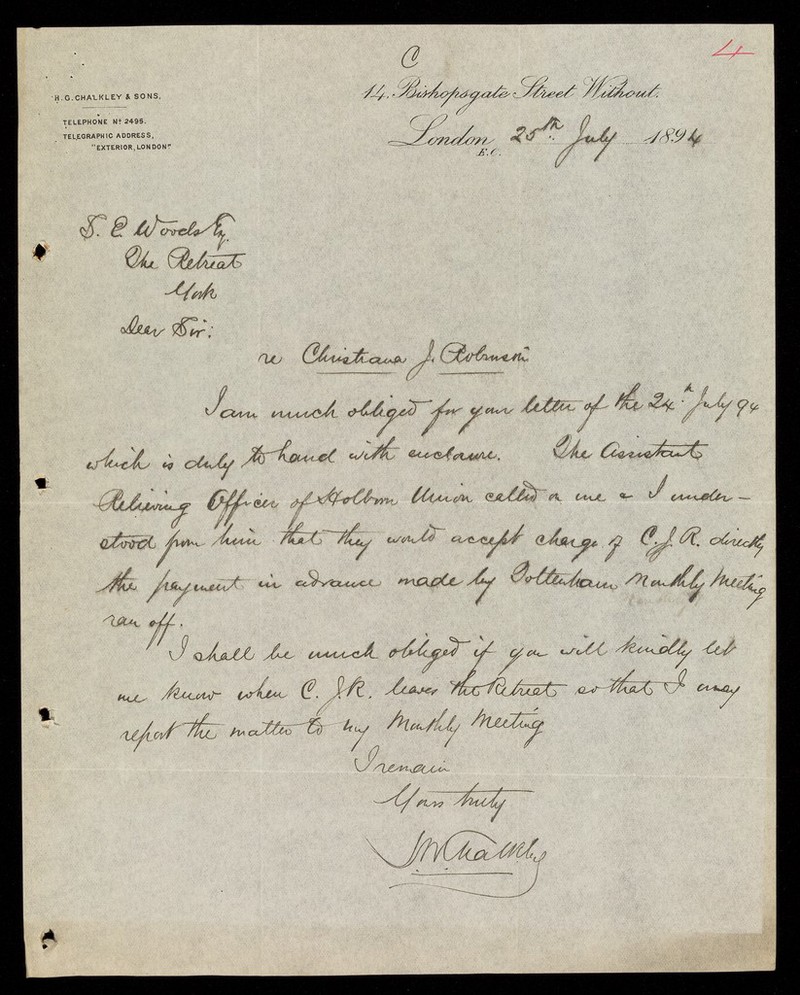 C
4
H. G. CHALKLEY & SONS.
TELEPHONE No 2495.
TELEGRAPHIC ADDRESS,
"EXTERIOR, LONDON"
14, Bishopsgate Street Without.
London, E.C. 25th July 1894
S. E. Woods Esq.
The Retreat
York
Dear Sir:
re Christiana J. Robinson
I am much obliged for your letter of the 24th July 94
which is duly to hand with enclosure. The Assistant
Relieving Officer of Holborn Union called on me & I under-
stood from him that they would accept charge of C. J. R. directly
the payment in advance made by Tottenham Monthly Meeting
ran off.
I shall be much obliged if you will kindly let
me know when C. J. R. leaves the Retreat so that I may
report the matter to my Monthly Meeting
I remain
Yours truly
Chalkley